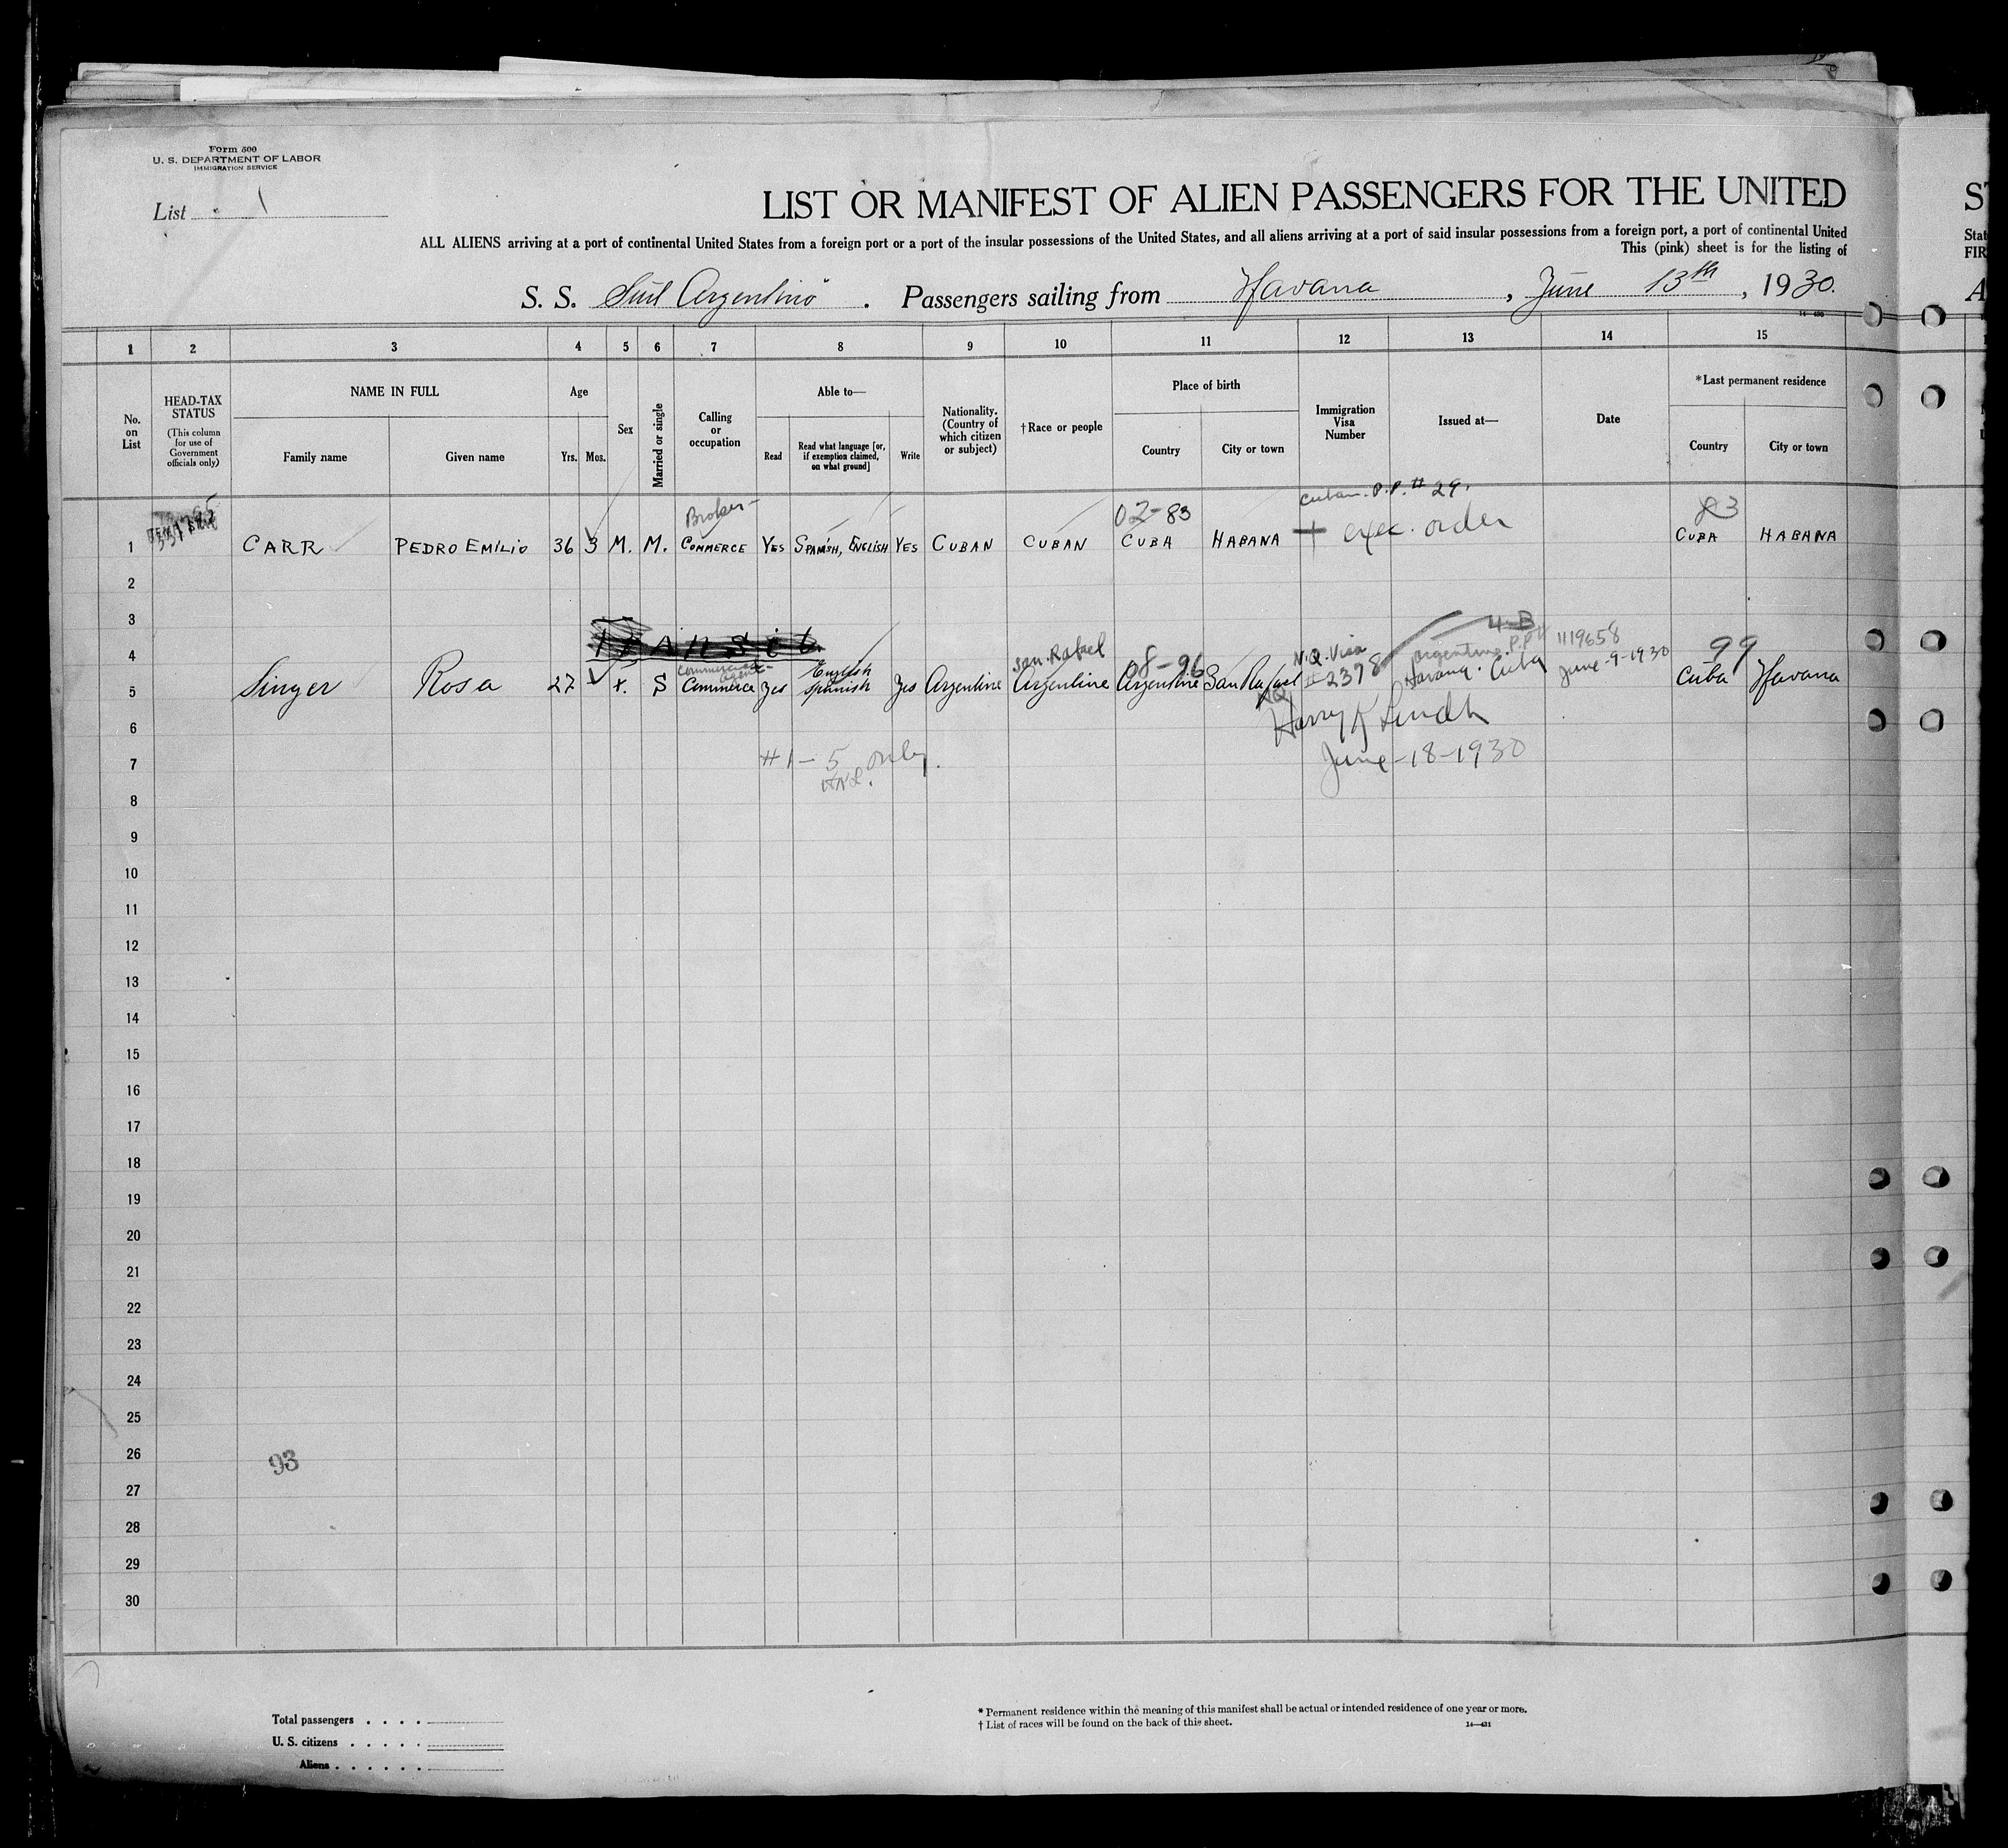 Form 500
U. S. DEPARTMENT OF LABOR
IMMIGRATION SERVICE
List 1
LIST OR MANIFEST OF ALIEN PASSENGERS FOR THE UNITED
ST
ALL ALIENS arriving at a port of continental United States from a foreign port or a port of the insular possessions of the United States, and all aliens arriving at a port of said insular possessions from a foreign port, a port of continental United
Stat
This (pink) sheet is for the listing of
FIR
S. S. Argentino . Passengers sailing from Havana , June 13th , 1930.
A
1 2 3 4 5 6 7 8 9 10 11 12 13 14 15
No. on List
HEAD-TAX STATUS
(This column for use of Government officials only)
NAME IN FULL
Family name
Given name
Age
Yrs.
Mos.
Sex
Married or single
Calling or occupation
Able to—
Read
Read what language [or, if exemption claimed, on what ground]
Write
Nationality. (Country of which citizen or subject)
†Race or people
Place of birth
Country
City or town
Immigration Visa Number
Issued at—
Date
*Last permanent residence
Country
City or town
Cuban. P.P. # 29.
Broker-
02-83
83
1 CARR PEDRO EMILIO 36 3 M. M. COMMERCE YES SPANISH, ENGLISH YES CUBAN CUBAN CUBA HABANA + exec. order CUBA HABANA
2
3
4-B
Transit
4
San Rafael
08-96
N.Q. Visa
Argentine. P.P.#
1119658
99
Commercial agent-
English
5 Singer Rosa 27 S Commerce Yes Spanish Yes Argentine Argentine Argentine San Rafael # 2378 Havana. Cuba June-9-1930 Cuba Havana
NQ
6
Harry K Lindh
7
#1-5 only.
June-18-1930
HKL.
8
9
10
11
12
13
14
15
16
17
18
19
20
21
22
23
24
25
26
93
27
28
29
30
Total passengers . . . .
U. S. citizens . . . . .
Aliens . . . . . .
* Permanent residence within the meaning of this manifest shall be actual or intended residence of one year or more.
† List of races will be found on the back of this sheet.
14—431